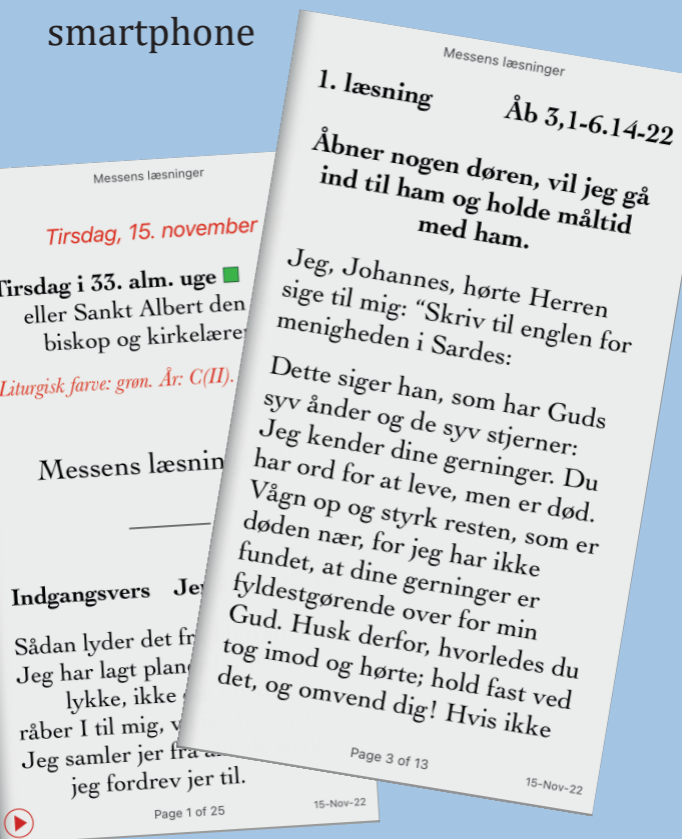 smartphone
Messens læsninger
Tirsdag, 15. november
Tirsdag i 33. alm. uge
eller Sankt Albert den
biskop og kirkelærer
Liturgisk farve: grøn. År: C(II).
Messens
Indgangsvers
Sådan lyder det
Jeg har lagt
lykke, ikke
råber I til mig,
Jeg samler jer fra
jeg fordrev jer til.
Page 1 of 25
15-Nov-22
Messens læsninger
1. læsning Åb 3,1-6.14-22
Åbner nogen døren, vil jeg gå
ind til ham og holde måltid
med ham.
Jeg, Johannes, hørte Herren
sige til mig: “Skriv til englen for
menigheden i Sardes:
Dette siger han, som har Guds
syv ånder og de syv stjerner:
Jeg kender dine gerninger. Du
har ord for at leve, men er død.
Vågn op og styrk resten, som er
døden nær, for jeg har ikke
fundet, at dine gerninger er
fyldestgørende over for min
Gud. Husk derfor, hvorledes du
tog imod og hørte; hold fast ved
det, og omvend dig! Hvis ikke
Page 3 of 13
15-Nov-22